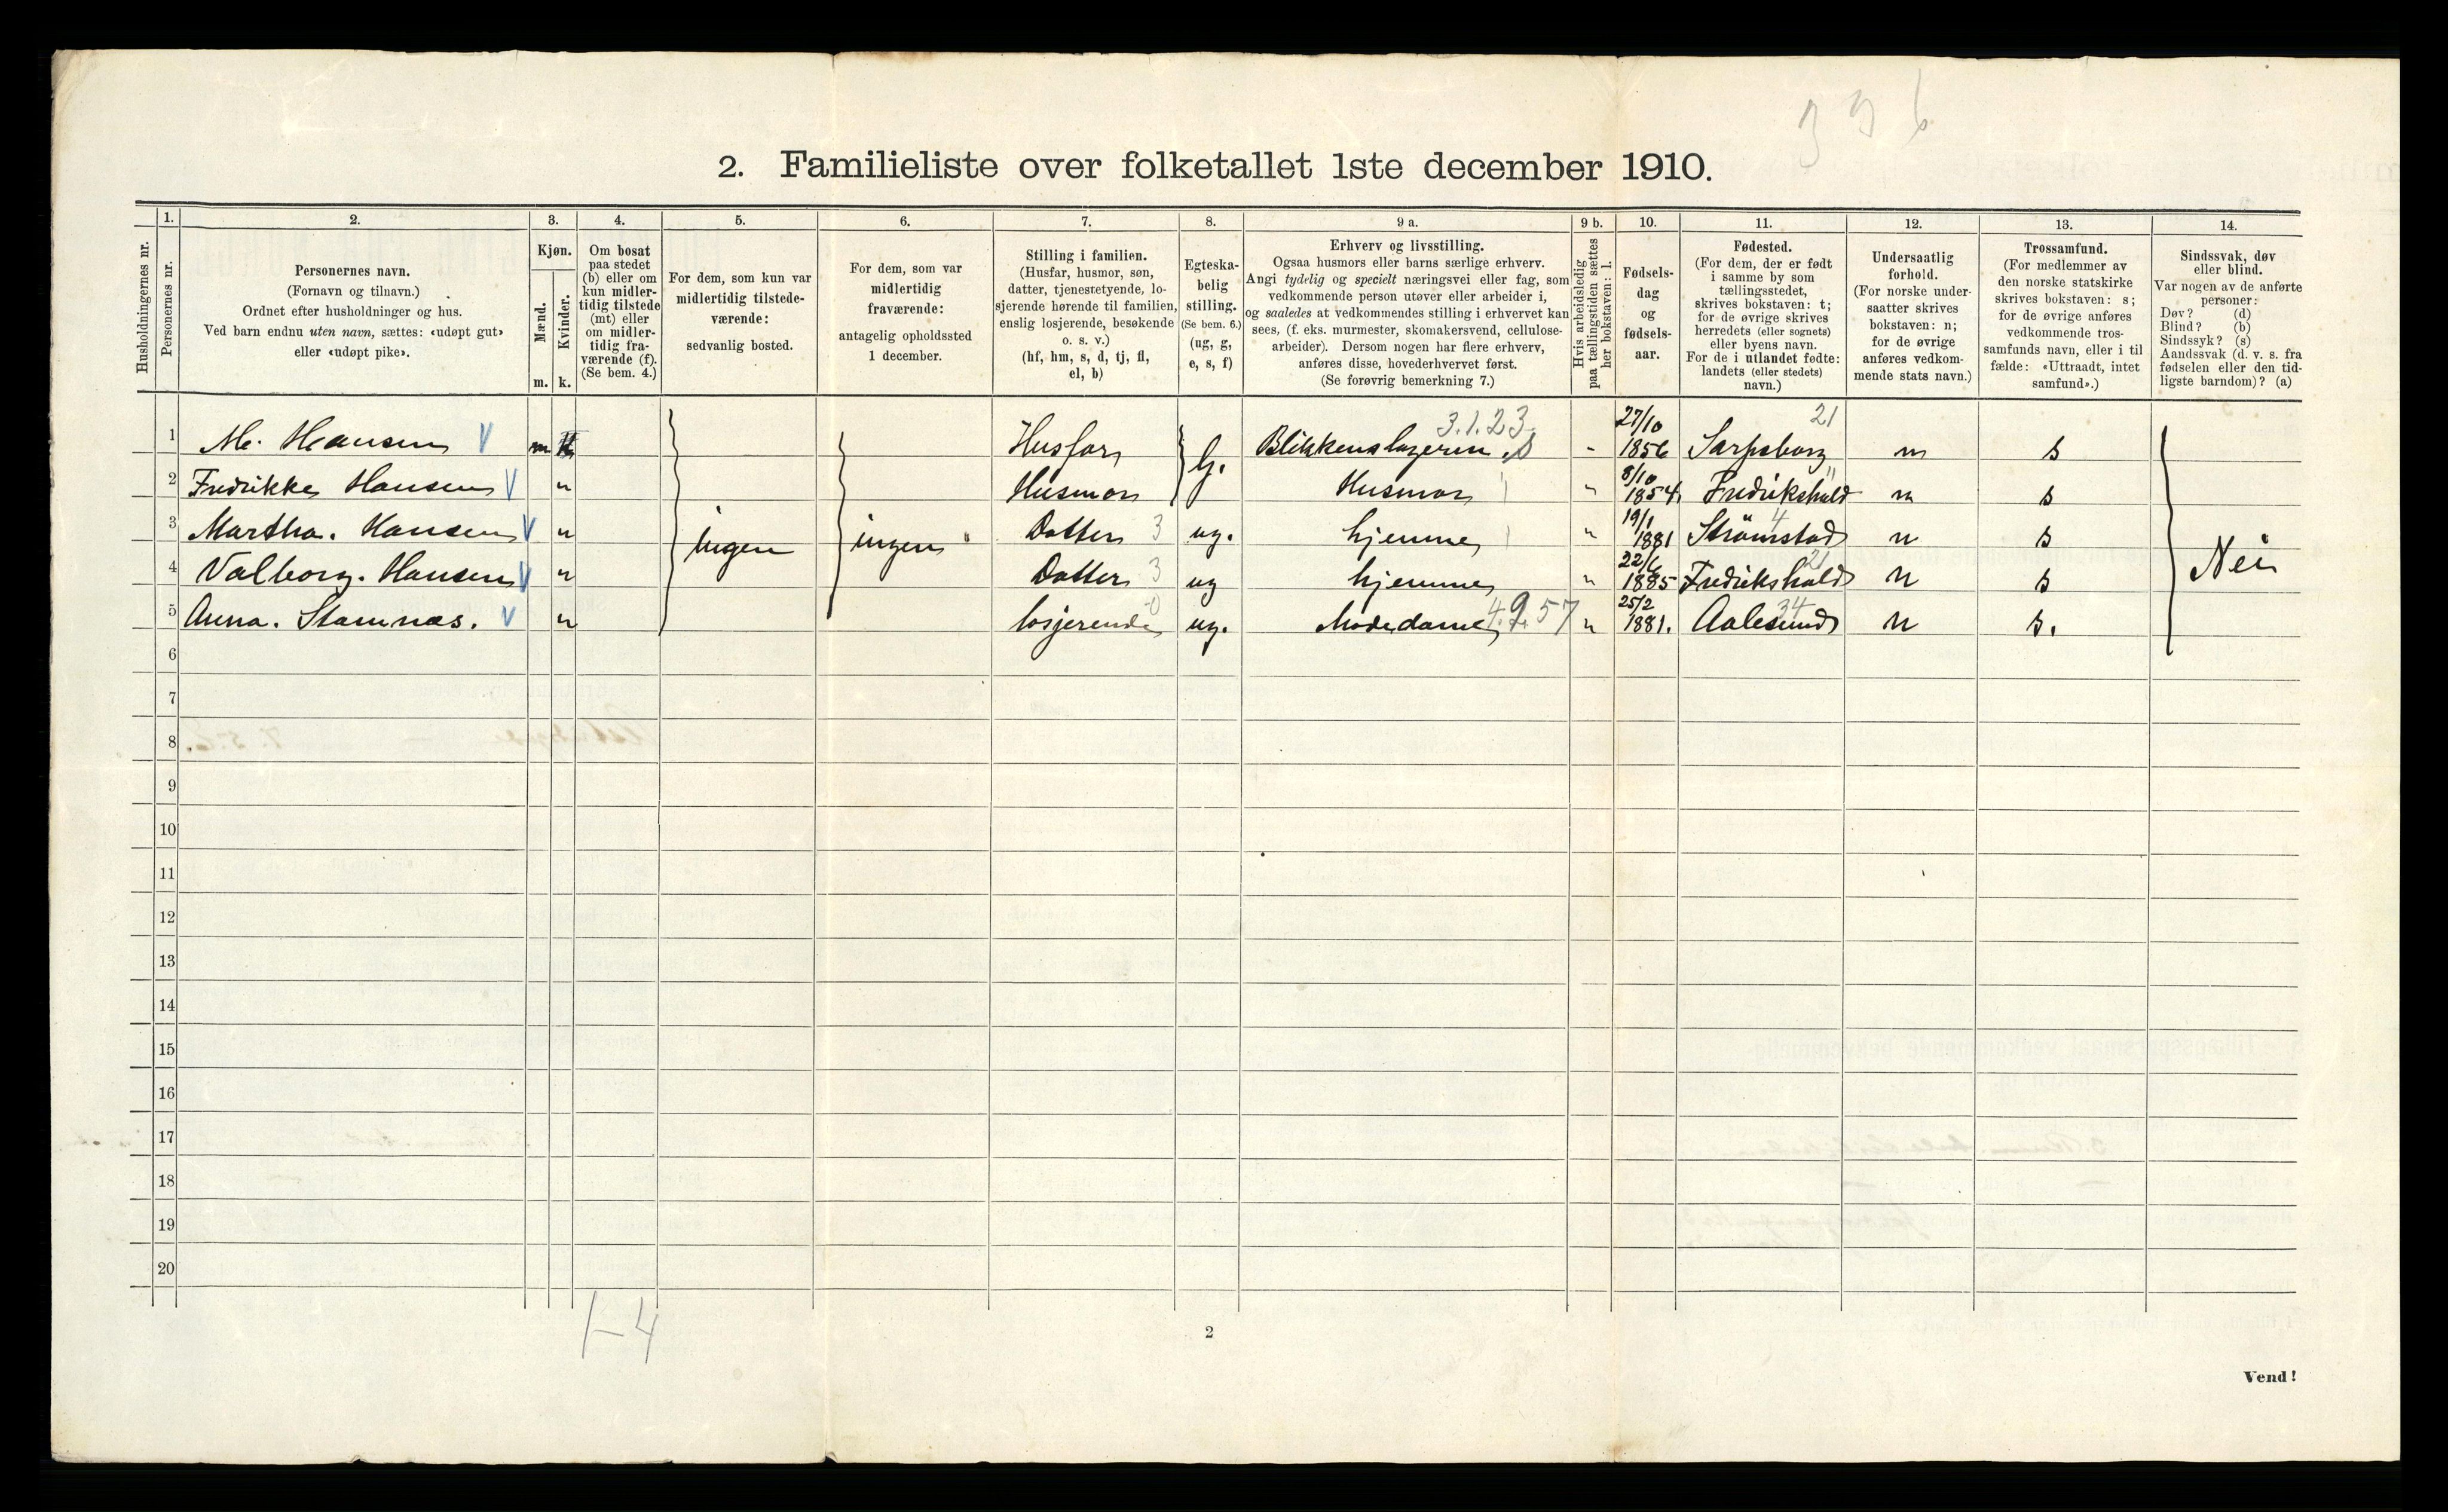 336
2. Familieliste over folketallet 1ste december 1910.
Husholdningernes nr.
1.
Personernes nr.
2.
Personernes navn.
(Fornavn og tilnavn.)
Ordnet efter husholdninger og hus.
Ved barn endnu uten navn, sættes: «udøpt gut»
eller «udøpt pike».
3.
Kjøn.
Mænd.
m.
Kvinder.
k.
4.
Om bosat
paa stedet
(b) eller om
kun midler-
tidig tilstede
(mt) eller
om midler-
tidig fra-
værende (f).
(Se bem. 4.)
5.
For dem, som kun var
midlertidig tilstede-
værende:
sedvanlig bosted.
6.
For dem, som var
midlertidig
fraværende:
antagelig opholdssted
1 december.
7.
Stilling i familien.
(Husfar, husmor, søn,
datter, tjenestetyende, lo-
sjerende hørende til familien,
enslig losjerende, besøkende
o. s. v.)
(hf, hm, s, d, tj, fl,
el, b)
8.
Egteska-
belig
stilling.
(Se bem. 6.)
(ug, g,
e, s, f)
9 a.
Erhverv og livsstilling.
Ogsaa husmors eller barns særlige erhverv.
Angi tydelig og specielt næringsvei eller fag, som
vedkommende person utøver eller arbeider i,
og saaledes at vedkommendes stilling i erhvervet kan
sees, (f. eks. murmester, skomakersvend, cellulose-
arbeider). Dersom nogen har flere erhverv,
anføres disse, hovederhvervet først.
(Se forøvrig bemerkning 7.)
9 b.
Hvis arbeidsledig
paa tællingstiden sættes
her bokstaven: l.
10.
Fødsels-
dag
og
fødsels-
aar.
11.
Fødested.
(For dem, der er født
i samme by som
tællingsstedet,
skrives bokstaven: t;
for de øvrige skrives
herredets (eller sognets)
eller byens navn.
For de i utlandet fødte:
landets (eller stedets)
navn.)
12.
Undersaatlig
forhold.
(For norske under-
saatter skrives
bokstaven: n;
for de øvrige
anføres vedkom-
mende stats navn.)
13.
Trossamfund.
(For medlemmer av
den norske statskirke
skrives bokstaven: s;
for de øvrige anføres
vedkommende tros-
samfunds navn, eller i til
fælde: «Uttraadt, intet
samfund».)
14.
Sindssvak, døv
eller blind.
Var nogen av de anførte
personer:
Døv? (d)
Blind? (b)
Sindssyk? (s)
Aandssvak (d. v. s. fra
fødselen eller den tid-
ligste barndom)? (a)
1 M. Hansen V m Husfar g. 3.1.23. Blikkenslager - 27/10 1856 21 Sarpsborg n s
2 Fredrikke Hansen V " Husmor Husmor " 8/10 1854. Fredrikshald n s
3 Martha. Hansen V " ingen ingen Datter 3 ug. hjemme " 19/1 1881 4 Strömstad n s
4 Valborg. Hansen V " Datter 3 ug hjemme " 22/6 1885 21 Fredrikshald n s Nei
5 Anna. Stamnæs. V " losjerende 0 ug. Modedame 4.9.57 " 25/2 1881. 34 Aalesund n s.
6
7
8
9
10
11
12
13
14
15
16
17
18
19
20
1-4
2
Vend!